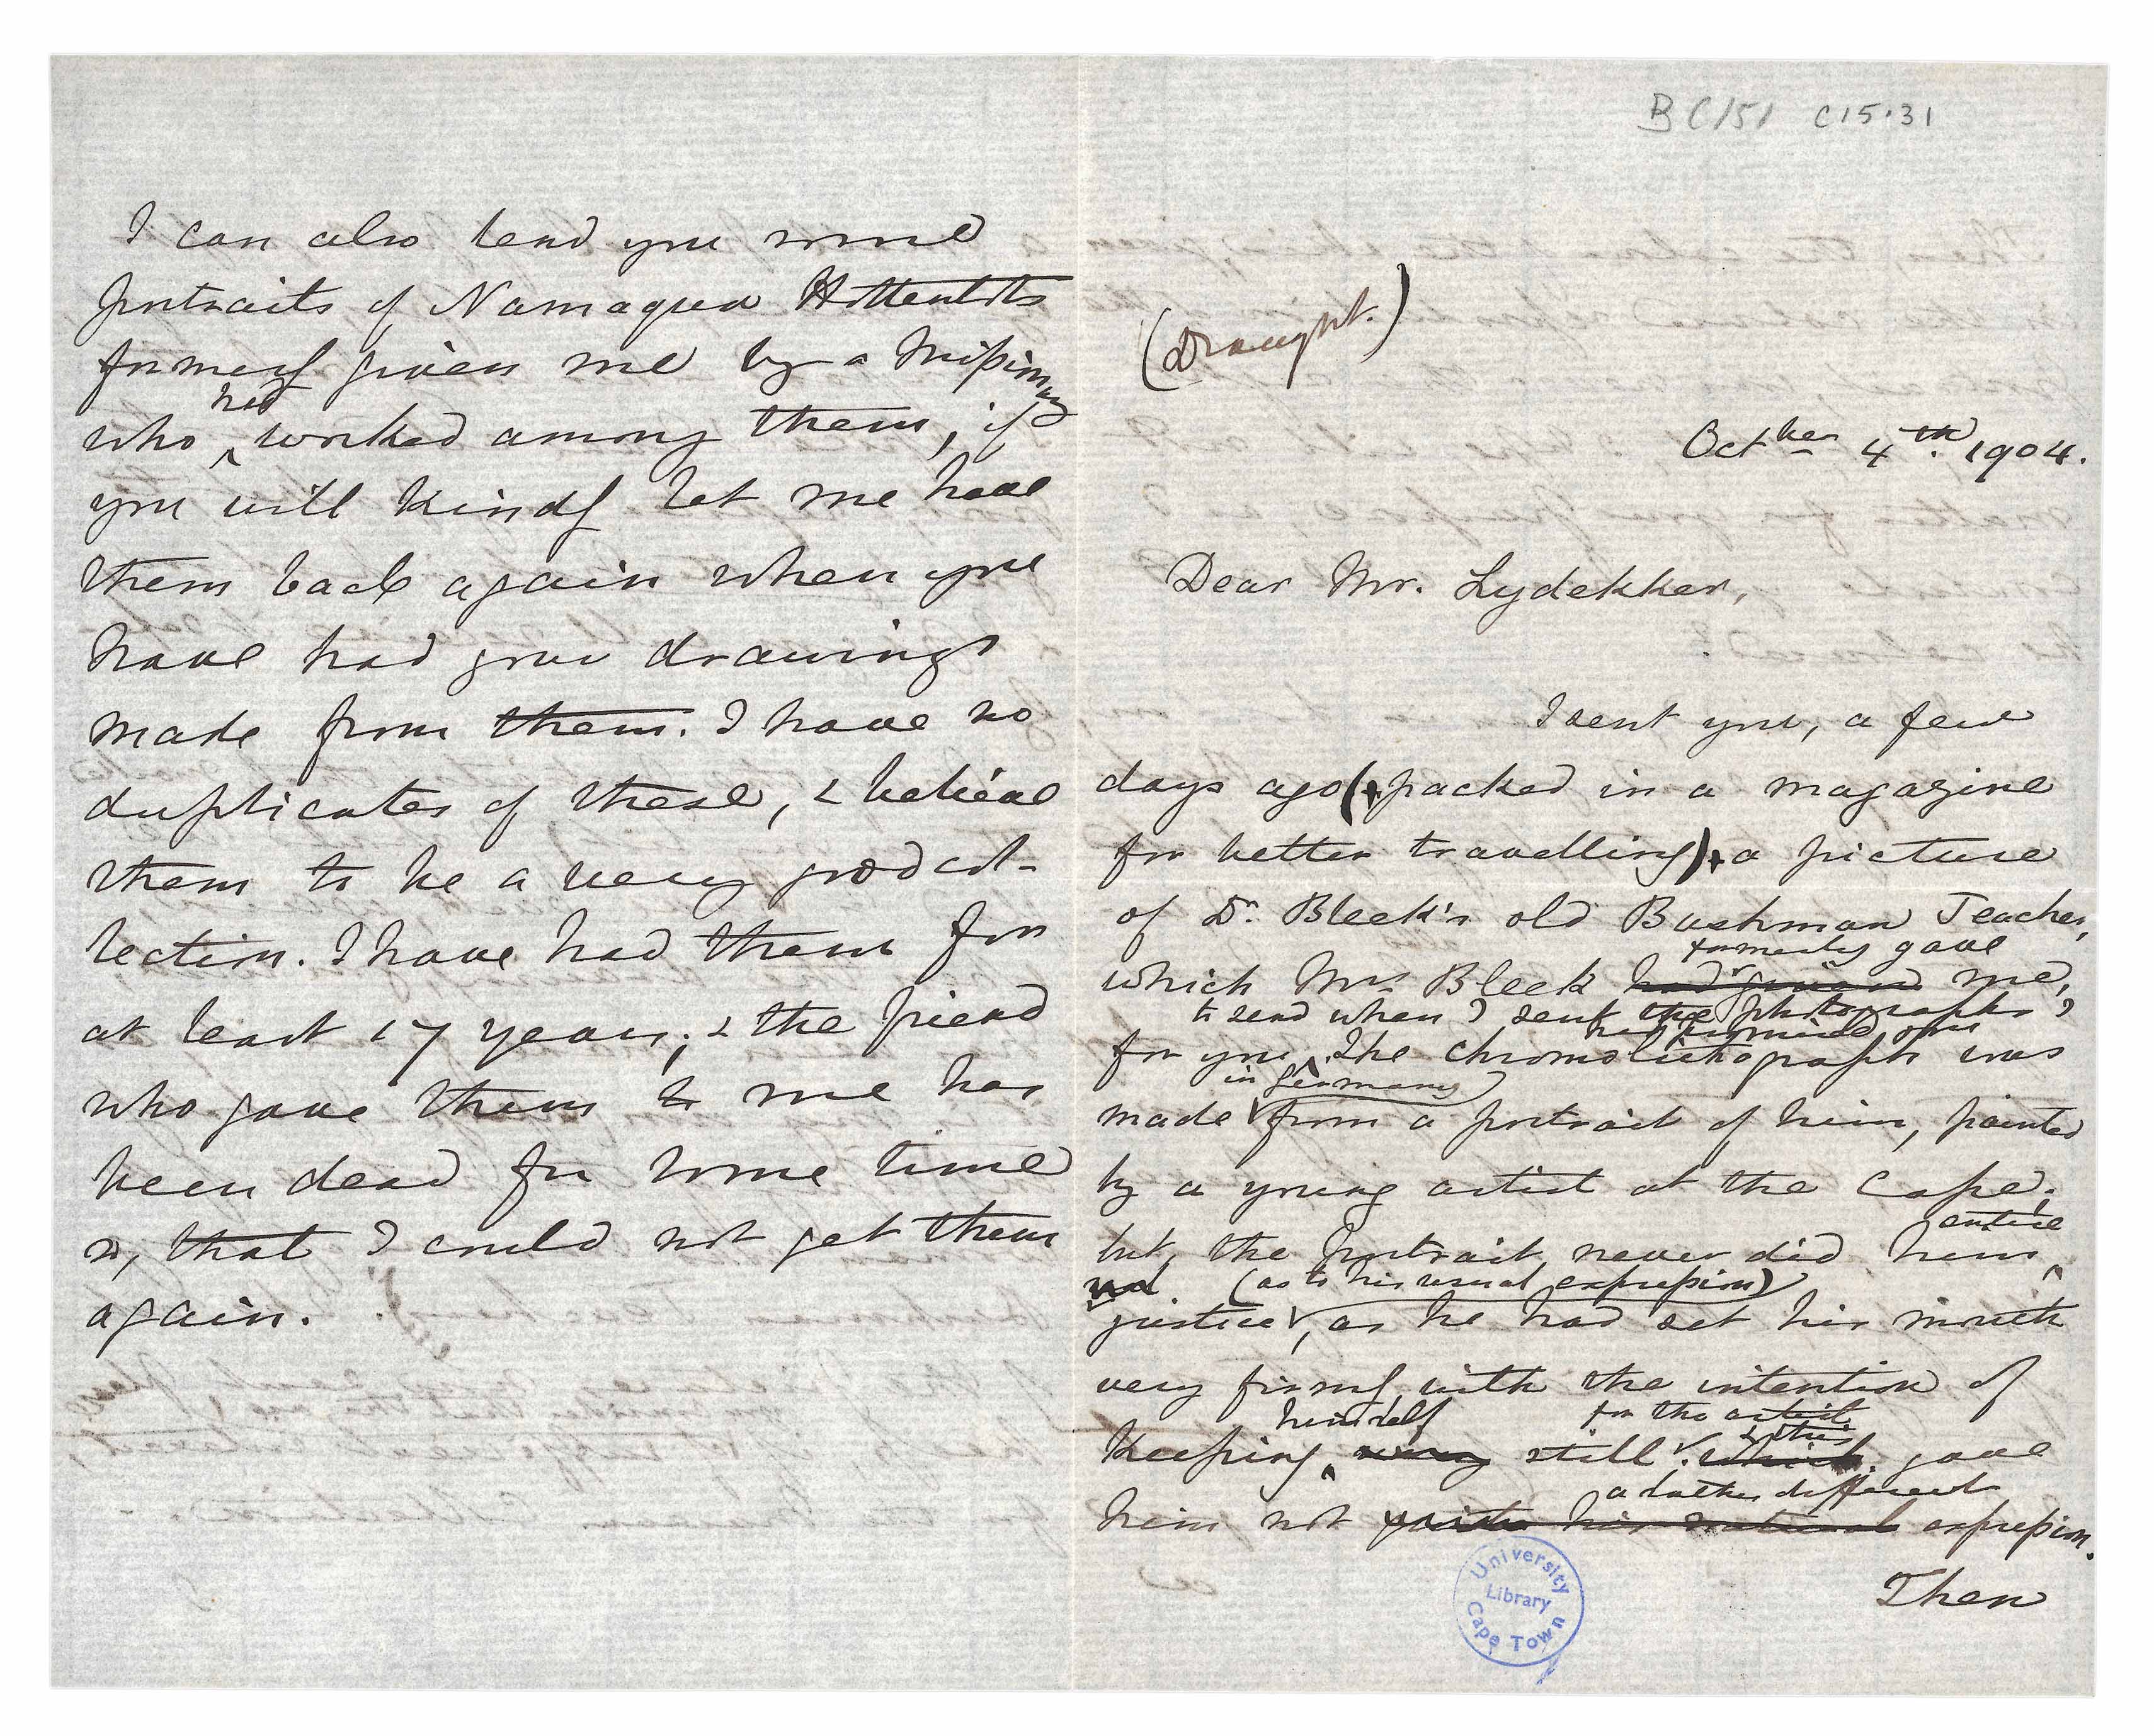 BC151 C15.31
(Draught.)
Oct ber 4th. 1904.
Dear Mr. Lydekker,
I sent you, a few
days ago (packed in a magazine
for better travelling) a picture
of Dr. Bleek's old Bushman Teacher,
formerly gave
which Mrs. Bleek had given me,
to send when I sent the photographs
for you. The chromolithograph was
in Germany
made from a portrait of him, painted
by a young artist at the Cape;
entire
but, the portrait, never did him
(as to his usual expression)
justice, as he had set his mouth
very firmly with the intention of
himself for the artist
& this
keeping very still. which gave
a rather different
him not quite his natural expression.
Then
University Library Cape Town
I can also lend you some
portraits of Namaqua Hottentots
formerly given me by a Missionary
had
who worked among them, if
you will kindly let me have
them back again when you
have had your drawings
made from them. I have no
duplicates of these, & believe
them to be a very good col-
lection. I have had them for
at least 17 years; & the friend
who gave them to me has
been dead for some time
so, that I could not get them
again.